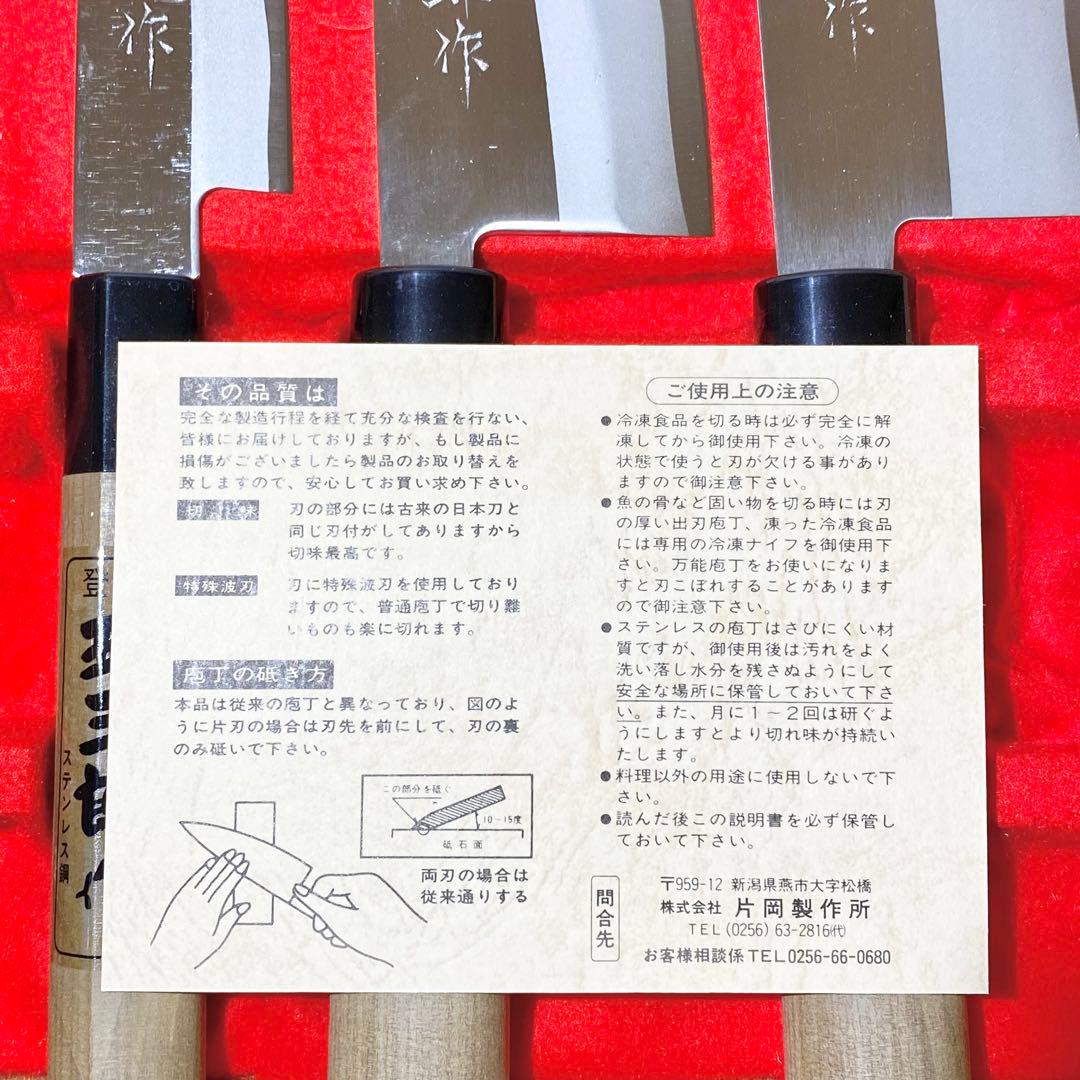 作
作
作
その品質は
完全な製造行程を経て充分な検査を行ない、
皆様にお届けしておりますが、もし製品に
損傷がございましたら製品のお取り替えを
致しますので、安心してお買い求め下さい。
刃の部分には古来の日本刀と
同じ刃付がしてありますから
切味最高です。
特殊波刃
刃に特殊波刃を使用しており
ますので、普通庖丁で切り難
いものも楽に切れます。
庖丁の砥ぎ方
本品は従来の庖丁と異なっており、図のよ
うに片刃の場合は刃先を前にして、刃の裏
のみ砥いで下さい。
この部分を砥ぐ
10〜15度
砥石面
両刃の場合は
従来通りする
ご使用上の注意
●冷凍食品を切る時は必ず完全に解
凍してから御使用下さい。冷凍の
状態で使うと刃が欠ける事があり
ますので御注意下さい。
●魚の骨など固い物を切る時には刃
の厚い出刃庖丁、凍った冷凍食品
には専用の冷凍ナイフを御使用下
さい。万能庖丁をお使いになりま
すと刃こぼれすることがあります
ので御注意下さい。
●ステンレスの庖丁はさびにくい材
質ですが、御使用後は汚れをよく
洗い落し水分を残さぬようにして
安全な場所に保管しておいて下さ
い。また、月に1〜2回は研ぐよ
うにしますとより切れ味が持続い
たします。
●料理以外の用途に使用しないで下
さい。
●読んだ後この説明書を必ず保管し
ておいて下さい。
問合先
〒959-12 新潟県燕市大字松橋
株式会社 片岡製作所
TEL(0256)63-2816(代)
お客様相談係TEL0256-66-0680
登
ステンレス鋼